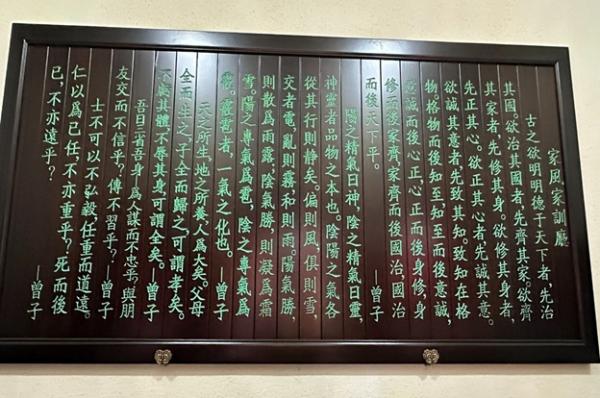 家風家訓廳
古之欲明明德于天下者，先治
其國。欲治其國者，先齊其家。欲齊
其家者，先修其身。欲修其身者，
先正其心。欲正其心者，先誠其意。
欲誠其意者先致其知。致知在格
物格物而後知至，知至而後意誠，
意誠而後心正，心正而後身修，身
修而後家齊，家齊而後國治，國治
而後天下平。 —曾子
陽之精氣曰神，陰之精氣曰靈，
神靈者品物之本也。陰陽之氣各
從其行則靜矣。偏則風，俱則雪，
交者電，亂則霧，和則雨。陽氣勝，
則散為雨露，陰氣勝，則凝為霜
雪。陽之專氣為雹，陰之專氣為
霰。霰雹者，一氣之化也。 —曾子
天之所生，地之所養，人為大矣。父母
全而生之子全而歸之，可謂孝矣。
不虧其體不辱其身可謂全矣。 —曾子
吾日三省吾身，為人謀而不忠乎？與朋
友交而不信乎？傳不習乎？ —曾子
士不可以不弘毅任重而道遠。
仁以為己任，不亦重乎？死而後
已，不亦遠乎？ —曾子